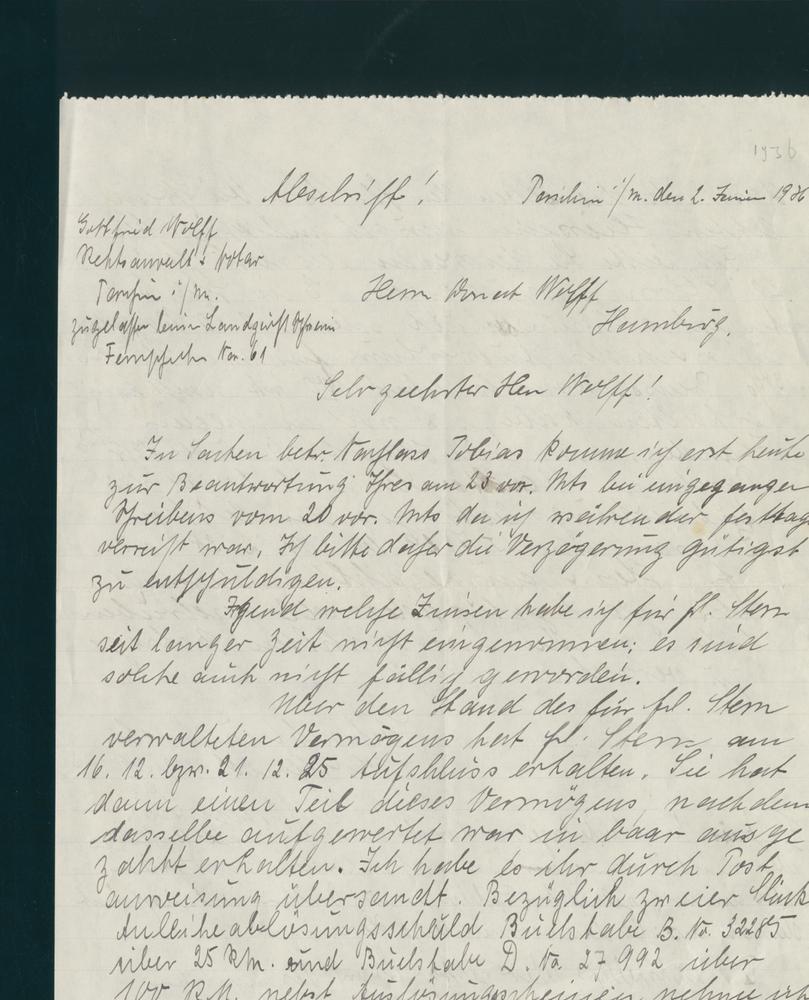 1936
Abschrift!
Parchim i/M. den 2. Januar 1936
Gottfried Wolff
Rechtsanwalt & Notar
Parchim i/M.
zugelassen beim Landgericht Schwerin
Fernspr. No. 61
Herrn Wolff
Hamburg.
Sehr geehrter Herr Wolff!
In Sachen betr. Nachlass Tobias komme ich erst heute
zur Beantwortung Ihres am 23 vor. Mts bei eingegangen
Schreibens vom 20 vor. Mts da ich während der festtag
verreist war. Ich bitte daher die Verzögerung gütigst
zu entschuldigen.
Irgend welche Zinsen habe ich für frl. Stern
seit langer Zeit nicht eingenommen; es sind
solche auch nicht fällig geworden.
Über den Stand des für frl. Stern
verwalteten Vermögens hat frl. Stern am
16. 12. bzw. 21. 12. 25 Aufschluss erhalten. Sie hat
dann einen Teil dieses Vermögens, nachdem
dasselbe aufgewertet war in baar ausge
zahlt erhalten. Ich habe es ihr durch Post
anweisung übersandt. Bezüglich zweier Stück
Anleiheablösungsschuld Buchstabe B. No. 32285
über 25 RM. und Buchstabe D. No 27992 über
100 R.M. nebst Auslosungsscheinen nehme ich